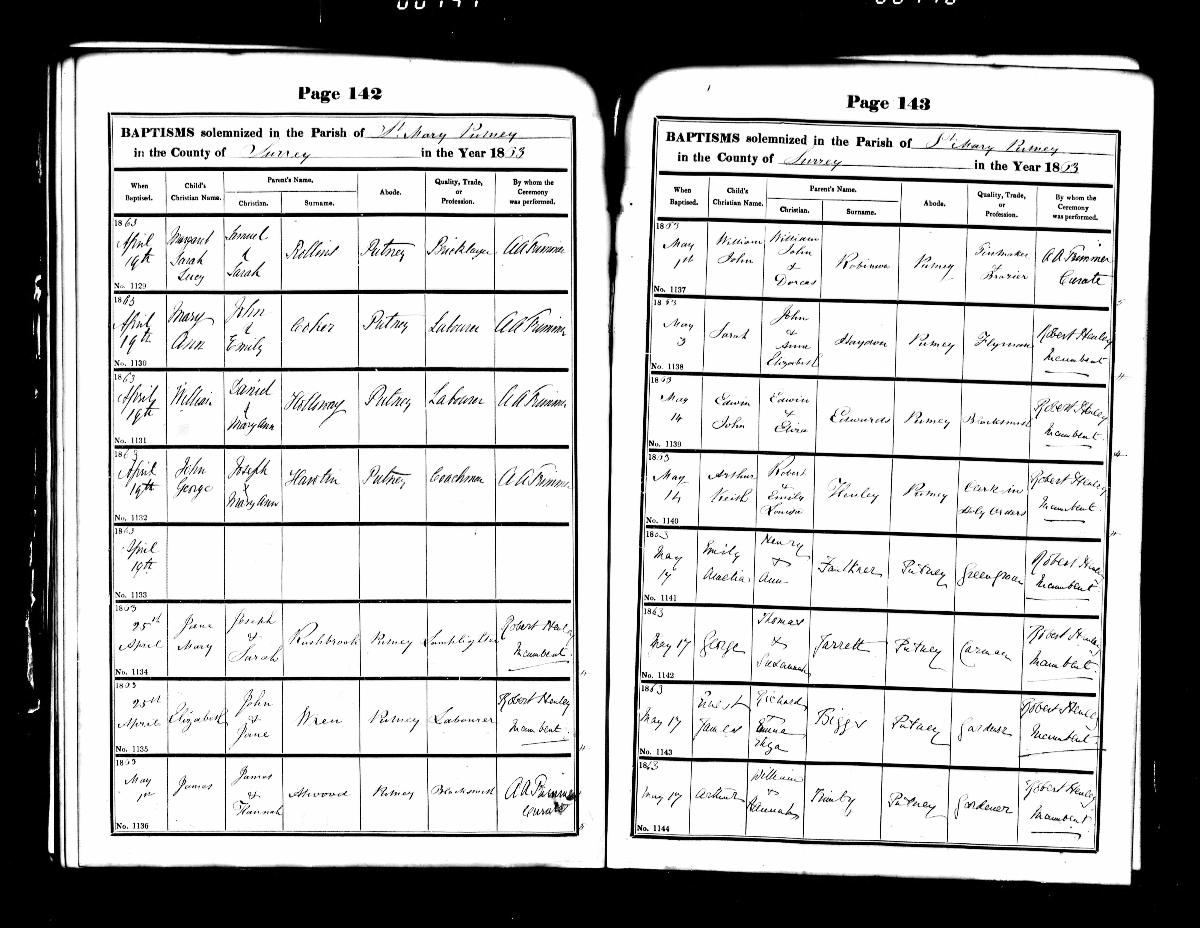 Page 142
BAPTISMS solemnized in the Parish of St Mary Putney
in the County of Surrey in the Year 1863
When Baptised. Child's Christian Name. Parent's Name. Christian. Surname. Abode. Quality, Trade, or Profession. By whom the Ceremony was performed.
1863
April Margaret Samuel
19th Sarah & Rollins Putney Bricklayer AA Trimmer
Lucy Sarah
No. 1129
1863
April Mary John
19th Ann & Putney Labourer AA Trimmer
Emily
No. 1130
1863
April William David
19th & Holloway Putney Labourer AA Trimmer
Mary Ann
No. 1131
1863
April John Joseph
19th George & Putney Coachman AA Trimmer
Mary Ann
No. 1132
1863
April
19th
No. 1133
1863
25th Jane Joseph Robert Henley
April Mary & Rushbrook Putney Lamplighter Incumbent
Sarah
No. 1134
1863
25th John Robert Henley
April Elizabeth & Wren Putney Labourer Incumbent
Jane
No. 1135
1863
May James James AA Trimmer
1st & Atwood Putney Blacksmith Curate
Hannah
No. 1136
Page 143
BAPTISMS solemnized in the Parish of St Mary Putney
in the County of Surrey in the Year 1863
When Baptised. Child's Christian Name. Parent's Name. Christian. Surname. Abode. Quality, Trade, or Profession. By whom the Ceremony was performed.
1863
May William William AA Trimmer
1st John John Robinson Putney & Curate
& Brazier
Dorcas
No. 1137
1863
May Sarah John Robert Henley
3 & Haydon Putney Flyman Incumbent
Anne
Elizabeth
No. 1138
1863
May Edwin Edwin Robert Henley
14 John & Edwards Putney Blacksmith Incumbent
No. 1139
1863
May Arthur Robert Clerk in Robert Henley
14 Keith & Henley Putney Holy Orders Incumbent
Emily
Louisa
No. 1140
1863
May Emily Henry Robert Henley
17 & Faulkner Putney Greengrocer Incumbent
Ann
No. 1141
1863
May 17 George Thomas Robert Henley
& Jarrett Putney Carman Incumbent
Susannah
No. 1142
1863
May 17 Ernest Richard Robert Henley
James & Biggs Putney Gardener Incumbent
Emma
No. 1143
1863
May 17 Arthur William Robert Henley
& Putney Gardener Incumbent
Hannah
No. 1144